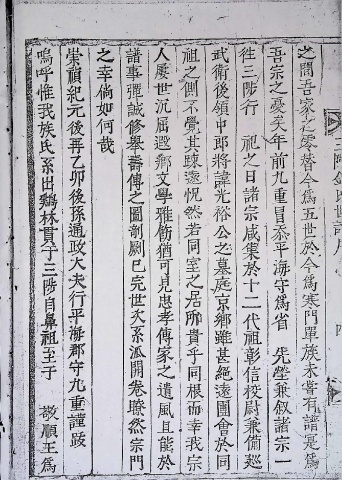 之間吾家尤零替今爲五世於今爲寒門單族未嘗有譜是爲
吾宗之憂矣年前九重冒忝平海守爲省 先塋兼叙諸宗一
徃三陟行 祀之日諸宗咸集於十二代祖彰信校尉兼備巡
武衛後領中郎將諱光裕公之墓庭京鄉雖甚絶遠團會於同
祖之側不覺其踈遠怳然若同室之居所貴乎同根而幸我宗
人屡世沉屈遐鄉文學雅飭猶可見忠孝傳家之遺風且能於
譜事彈誠修舉壽傳之圖剞劂已完世次系派開卷瞭然宗門
之幸倘如何哉
崇禎紀元後再乙卯後孫通政大夫行平海郡守九重謹跋
嗚呼惟我族氏系出鷄林貫于三陟自鼻祖王子 敬順王爲